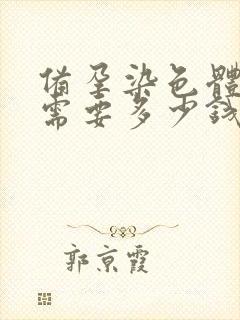 備孕染色體
需要多少錢
郭京霞